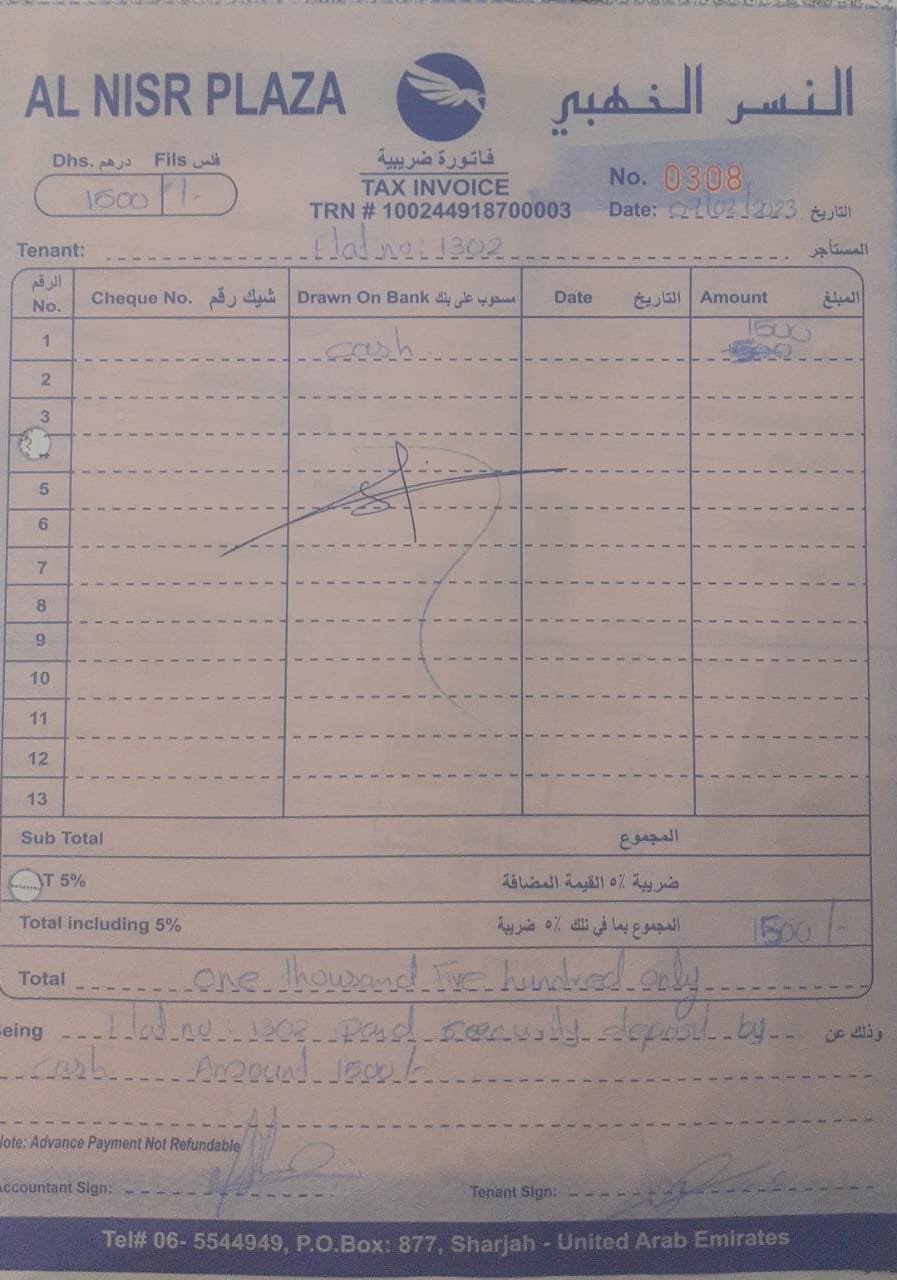 AL NISR PLAZA
النسر الذهبي
Dhs. درهم Fils فلس
1500 /-
فاتورة ضريبية
TAX INVOICE
TRN # 100244918700003
No. 0308
Date: 09/02/2023 التاريخ
Tenant: Flat no: 1302 المستأجر
الرقم No. Cheque No. شيك رقم Drawn On Bank مسحوب على بنك Date التاريخ Amount المبلغ
1 cash 1500
2
3
5
6
7
8
9
10
11
12
13
Sub Total المجموع
T 5% ضريبة ٥٪ القيمة المضافة
Total including 5% المجموع بما في ذلك ٥٪ ضريبة 1500/-
Total one thousand Five hundred only
Being Flat no: 1302 paid security deposit by وذلك عن
cash Amount 1500/-
Note: Advance Payment Not Refundable
Accountant Sign: Tenant Sign:
Tel# 06- 5544949, P.O.Box: 877, Sharjah - United Arab Emirates